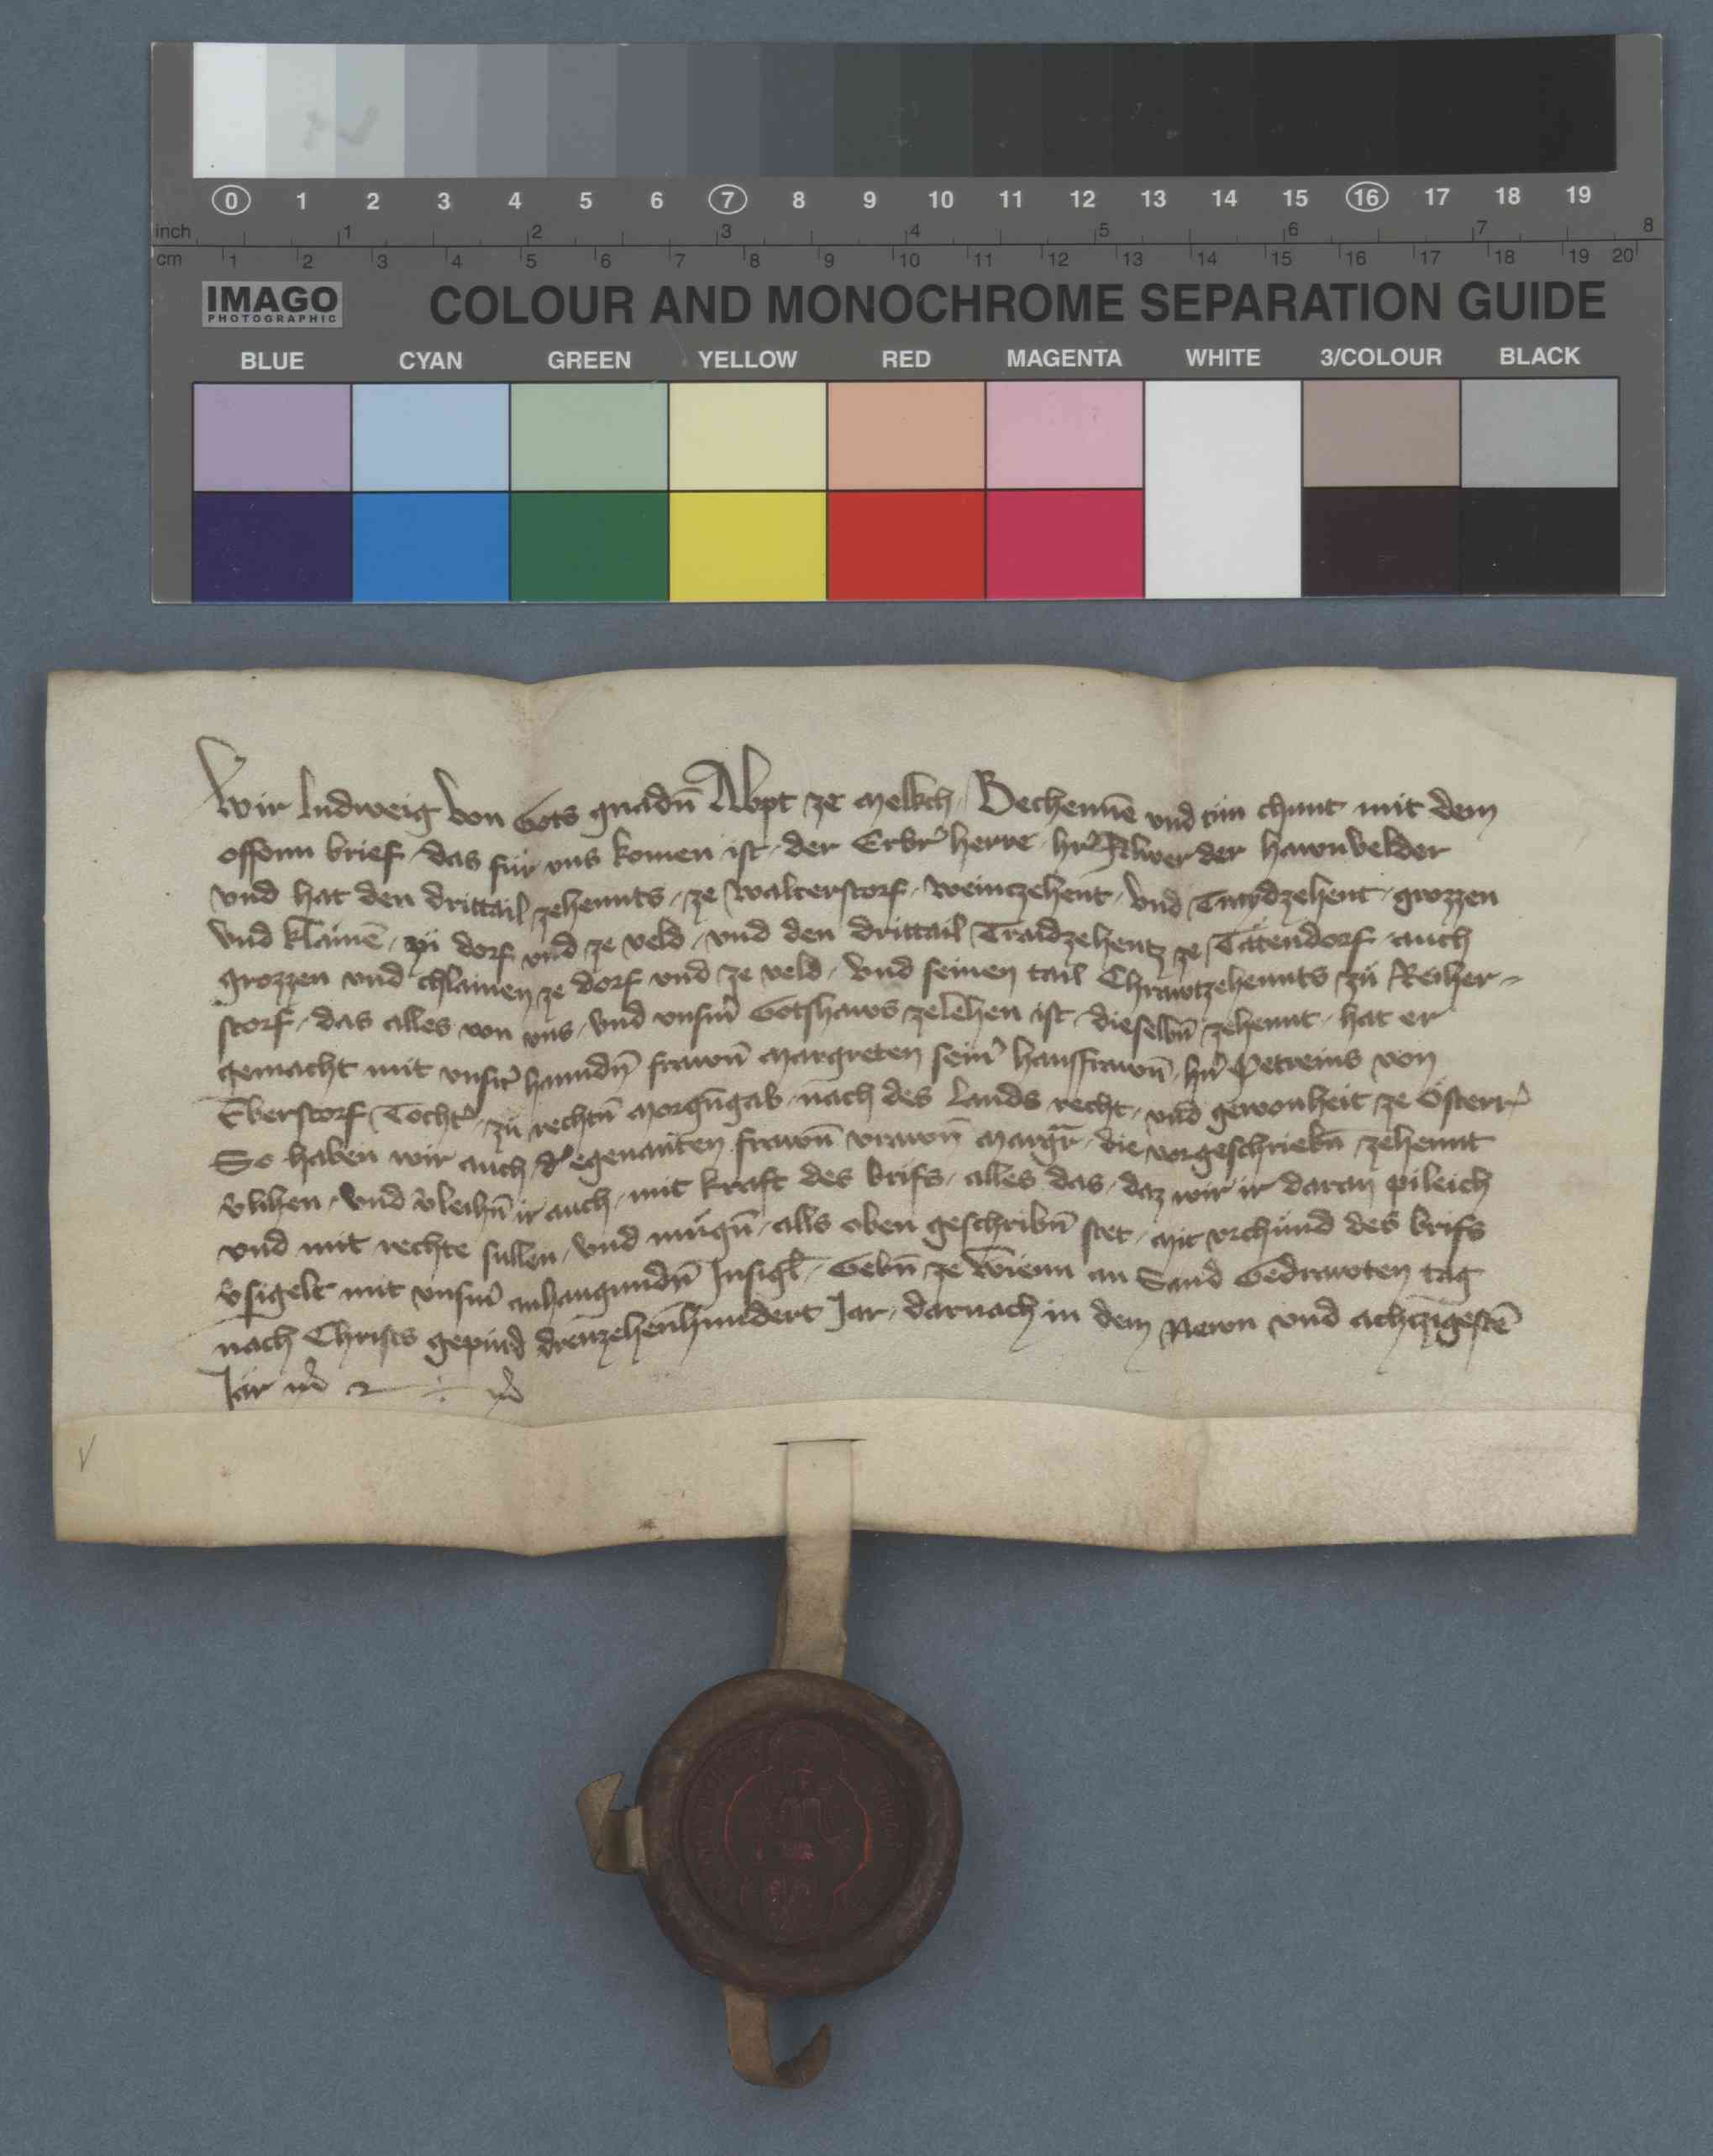 0 1 2 3 4 5 6 7 8 9 10 11 12 13 14 15 16 17 18 19
inch 1 2 3 4 5 6 7 8
cm 1 2 3 4 5 6 7 8 9 10 11 12 13 14 15 16 17 18 19 20
IMAGO
PHOTOGRAPHIC
COLOUR AND MONOCHROME SEPARATION GUIDE
BLUE CYAN GREEN YELLOW RED MAGENTA WHITE 3/COLOUR BLACK
Wir Ludweig von Gots gnadn̄ Abpt ze Melkch Bechennē vnd tůn chunt mit dem
offenn brief das für vns komen ist der Erbr̄ herre her der hawnvelder
vnd hat den drittail zehennts ze Walterstorf weintzehent vnd Traydzehent grozzen
vnd klainē zů dorf vnd ze veld vnd den drittail Traidzehentz ze Tätendorf auch
grozzen vnd chlainen ze dorf vnd ze veld vnd seinen tail Chrawtzehennts zů Reiher-
storf das alles von vns vnd vnsm̄ Gotshaws zelehen ist dieselbn̄ zehennt hat er
gemacht mit vnsr̄ hanndn̄ frawn̄ Margreten sein̄ hausfrawn̄ hn̄ Petreins von
Eberstorf Tochter zů rechtn̄ Morgn̄gab nach des Lands recht vnd gewonheit ze Österr̄
So haben wir auch der egenanten frawn̄ vrawn̄ Margr̄ die vorgeschriebn̄ zehennt
v̄lihen vnd v̄leihn̄ ir auch mit kraft des brifs alles das daz wir ir daran pileich
vnd mit rechte sullen vnd mügn̄ alls oben geschribn̄ stet Mit vrchünd des brifs
v̄sigelt mit vnsm̄ anhangundn̄ Insigl̄ Gebn̄ ze Wienn an Sand Gedrawten tag
nach Christs gepürd drewzehenhundert Jar darnach in dem Newn vnd achtzigestē
Jar